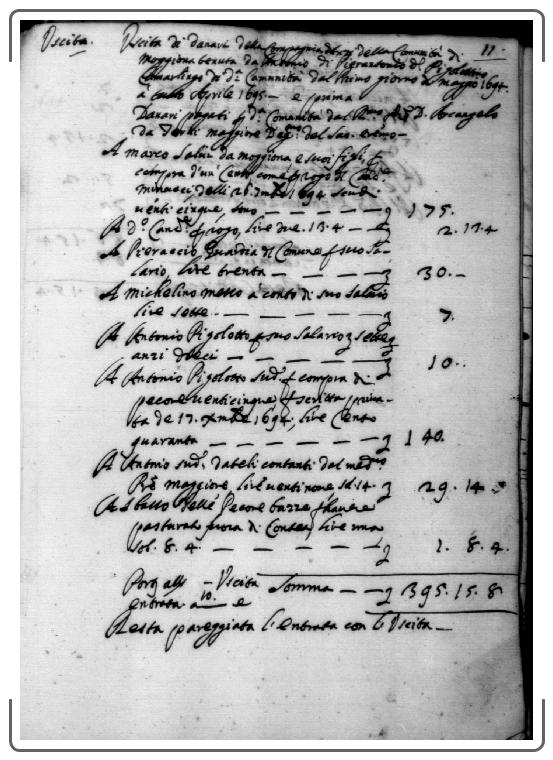 Uscita. Uscita di danari della Compagnia della Comunità di 11.
Moggiona tenuta da Antonio di Pierantonio d.º Pigolotto
Camarlingo di d.ª Comunità dal Primo giorno di Maggio 1694
a tutto Aprile 1695 — e prima
Danari pagati d.ª Comunità dal D. Arcangelo
da maggiore del Sac. eremo —
A Marco Salvi da Moggiona e suoi figli, p
compra d'un Censo come p rogo di
Minucci delli 26. 1694 scudi
venti cinque, sono — — — 175.
A d.º p rogo, lire due. 13. 4 — 2. 13. 4
A Pieraccio Guardia del Comune p suo Sa-
lario, lire trenta — — — 30. —
A Michelino messo a conto di suo Salario
lire sette — — — — 7.
A Antonio Pigolotto p suo Salario
anzi dieci — — — — 10.
A Antonio Pigolotto sud.º p compra di
pecore venticinque p scritta priva-
ta de 17. 1694, lire Cento
quaranta — — — — — 140.
A Antonio sud.º dateli contanti dal med.mo
P.re maggiore, lire ventinove sd. 14. 29. 14. —
A Pecore
pasturate fuora di lire una
sol. 8. 4. — — — — — 1. 8. 4.
Uscita Somma — — 395. 15. 8
entrata a 10. e
Resta pareggiata l'entrata con l'Uscita —